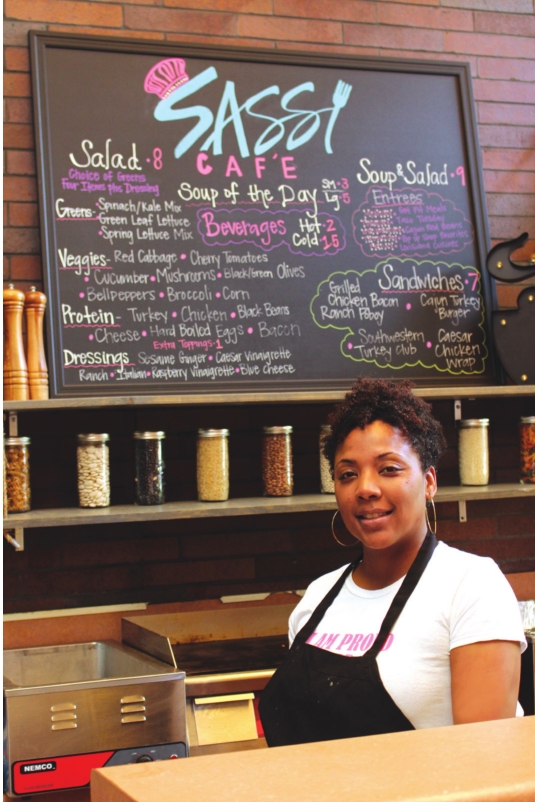 SASSI
CAF'E
Salad • 8
Choice of Greens
Four Items plus Dressing
Greens - Spinach/Kale Mix
Green Leaf Lettuce
Spring Lettuce Mix
Veggies - Red Cabbage • Cherry Tomatoes
• Cucumber • Mushrooms • Black/Green Olives
• Bell Peppers • Broccoli • Corn
Protein - Turkey • Chicken • Black Beans
• Cheese • Hard Boiled Eggs • Bacon
Extra Toppings - 1
Dressings Sesame Ginger • Caesar Vinaigrette
Ranch • Italian • Raspberry Vinaigrette • Blue Cheese
Soup of the Day Sm - 3
Lg - 5
Beverages Hot - 2
Cold 1.5
Soup & Salad • 9
Entrees
Sandwiches - 7
Grilled
Chicken Bacon
Ranch
• Cajun Turkey
Burger
Southwestern
Turkey Club
• Caesar
Chicken
Wrap
I AM PROUD
NEMCO